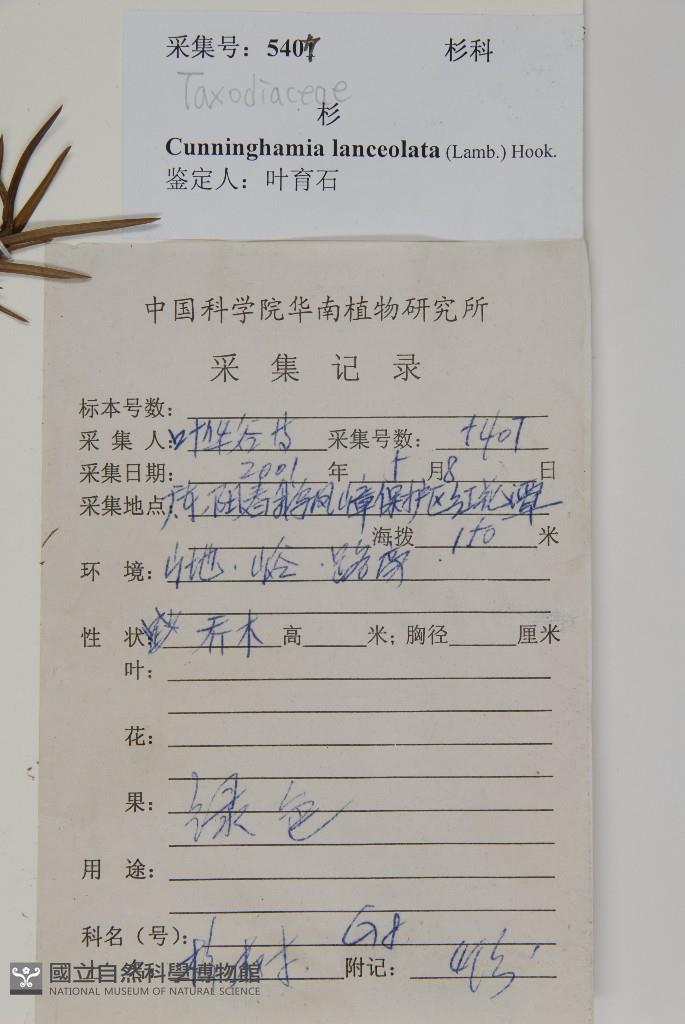 采集号：5407 杉科
Taxodiaceae
杉
Cunninghamia lanceolata (Lamb.) Hook.
鉴定人：叶育石
中国科学院华南植物研究所
采集记录
标本号数：
采集人：叶华谷 采集号数：5407
采集日期：2001年5月8日
采集地点：广东阳春鹅凰嶂保护区红花潭
海拨 150 米
环境：山地·路旁
性状：乔木 高 米；胸径 厘米
叶：
花：
果：绿色
用途：
科名（号）：G8
杉木 附记：
國立自然科學博物館
NATIONAL MUSEUM OF NATURAL SCIENCE